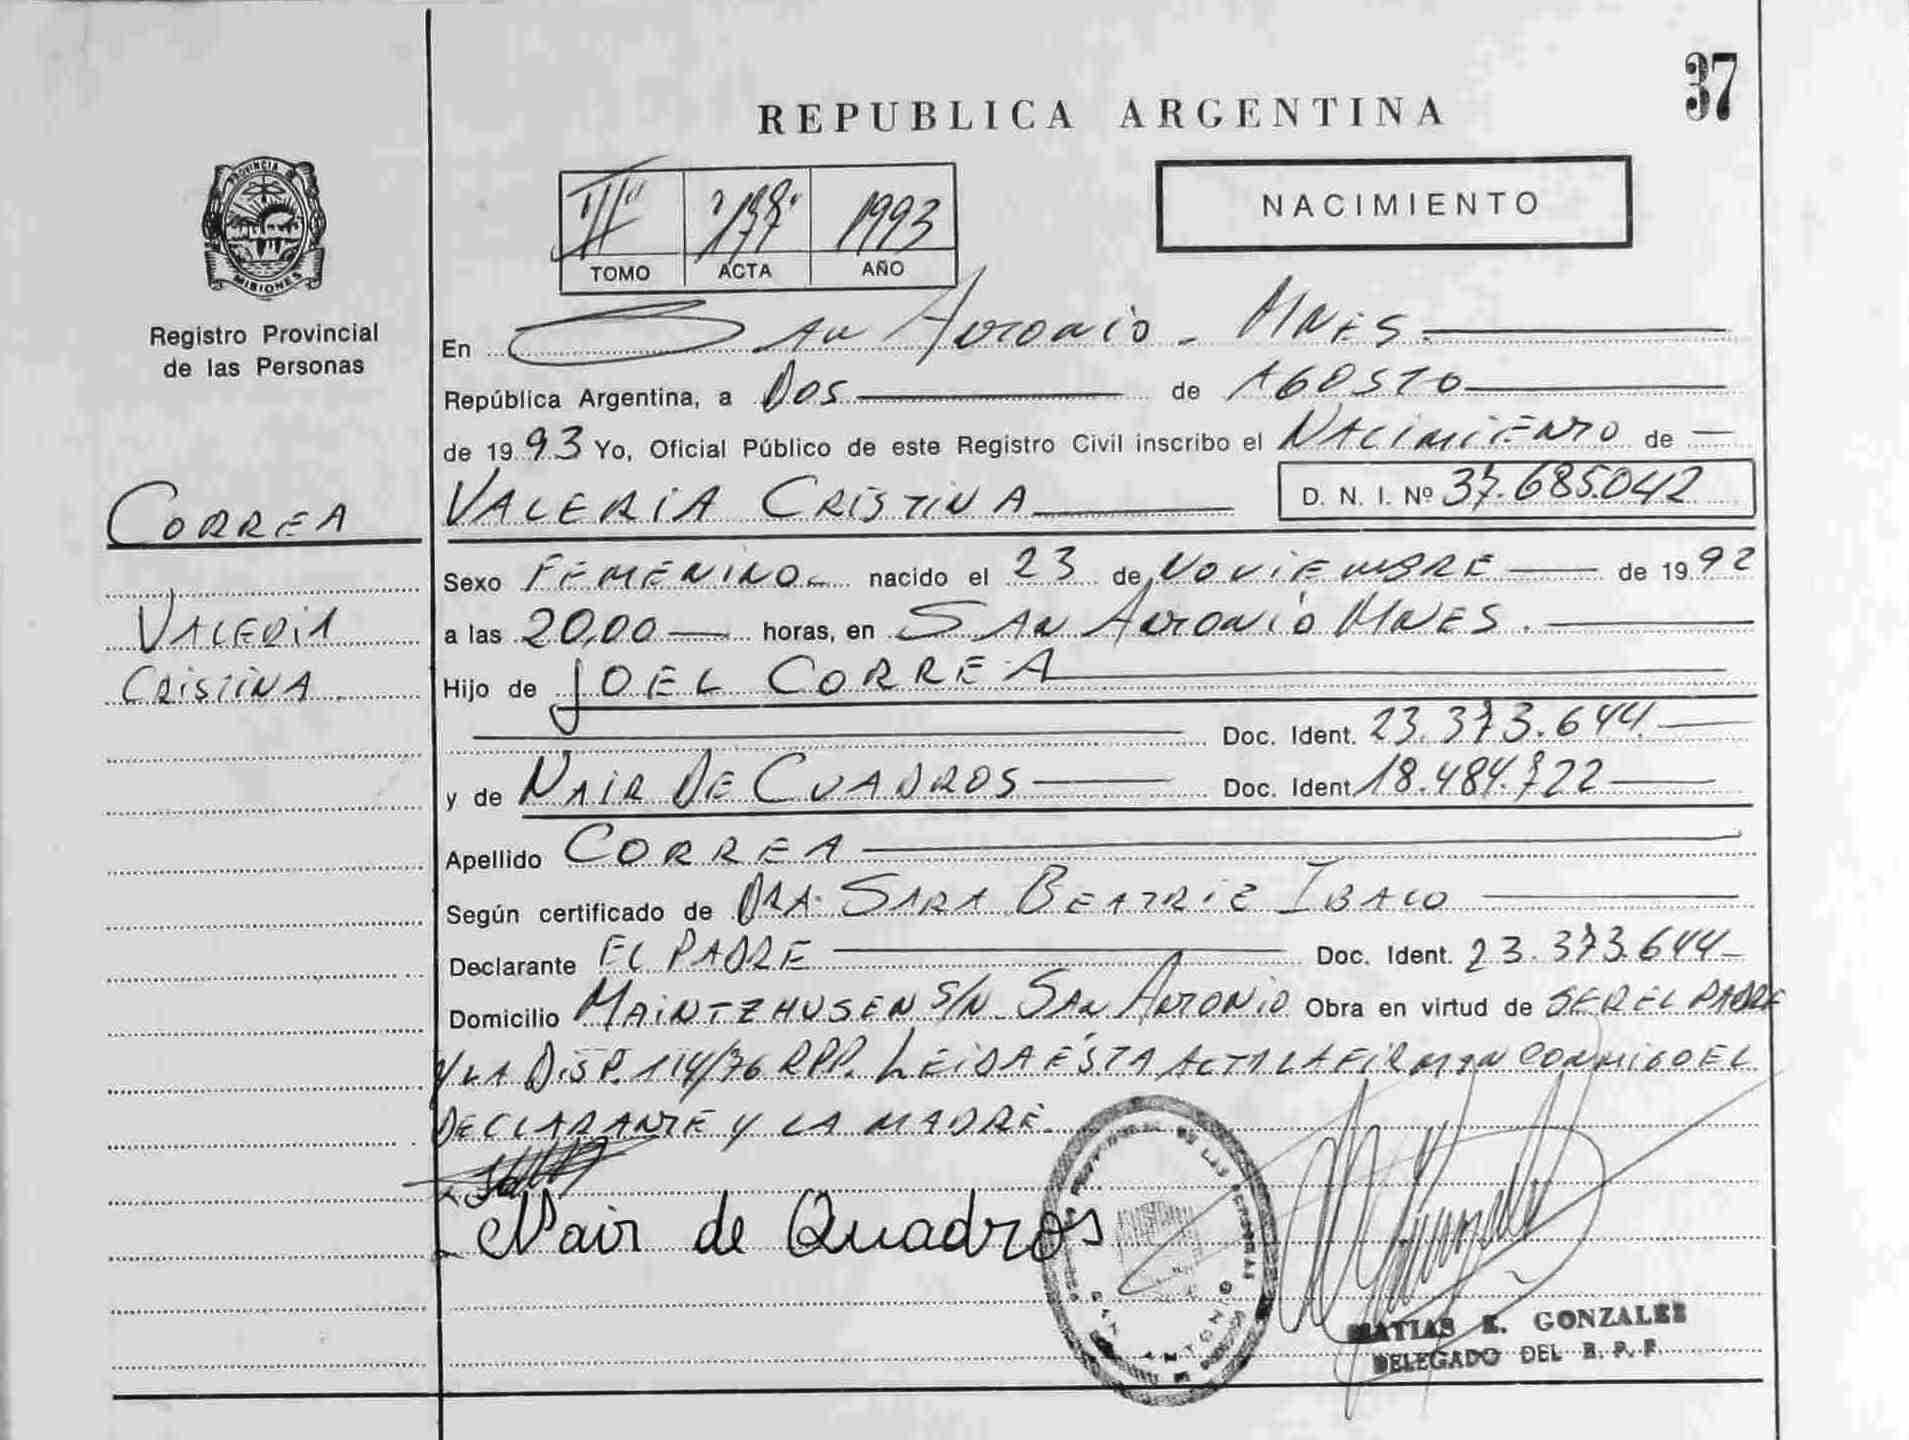 37
REPUBLICA ARGENTINA
PROVINCIA DE
MISIONES
NACIMIENTO
III 1993
TOMO ACTA AÑO
Registro Provincial
de las Personas
En San Antonio - Mnes.
República Argentina, a Dos de Agosto
de 1993 Yo, Oficial Público de este Registro Civil inscribo el Nacimiento de
CORREA
VALERIA CRISTINA D. N. I. Nº 37.685.042
Sexo FEMENINO nacido el 23 de NOVIEMBRE de 1992
VALERIA
a las 20,00 horas, en SAN ANTONIO MNES.
CRISTINA
Hijo de JOEL CORREA
Doc. Ident. 23.373.644
y de NAIR DE CUADROS Doc. Ident 18.484.722
Apellido CORREA
Según certificado de DRA. SARA BEATRIZ IBALO
Declarante EL PADRE Doc. Ident. 23.373.644
Domicilio MAINTZHUSEN S/N SAN ANTONIO Obra en virtud de SER EL PADRE
Y LA DISP. 114/76 RPP. LEIDA ÉSTA ACTA LA FIRMAN CONMIGO EL
DECLARANTE Y LA MADRE.
Nair de Quadros
DE LAS PERSONAS
SAN ANTONIO
MATIAS E. GONZALEZ
DELEGADO DEL R. P. P.